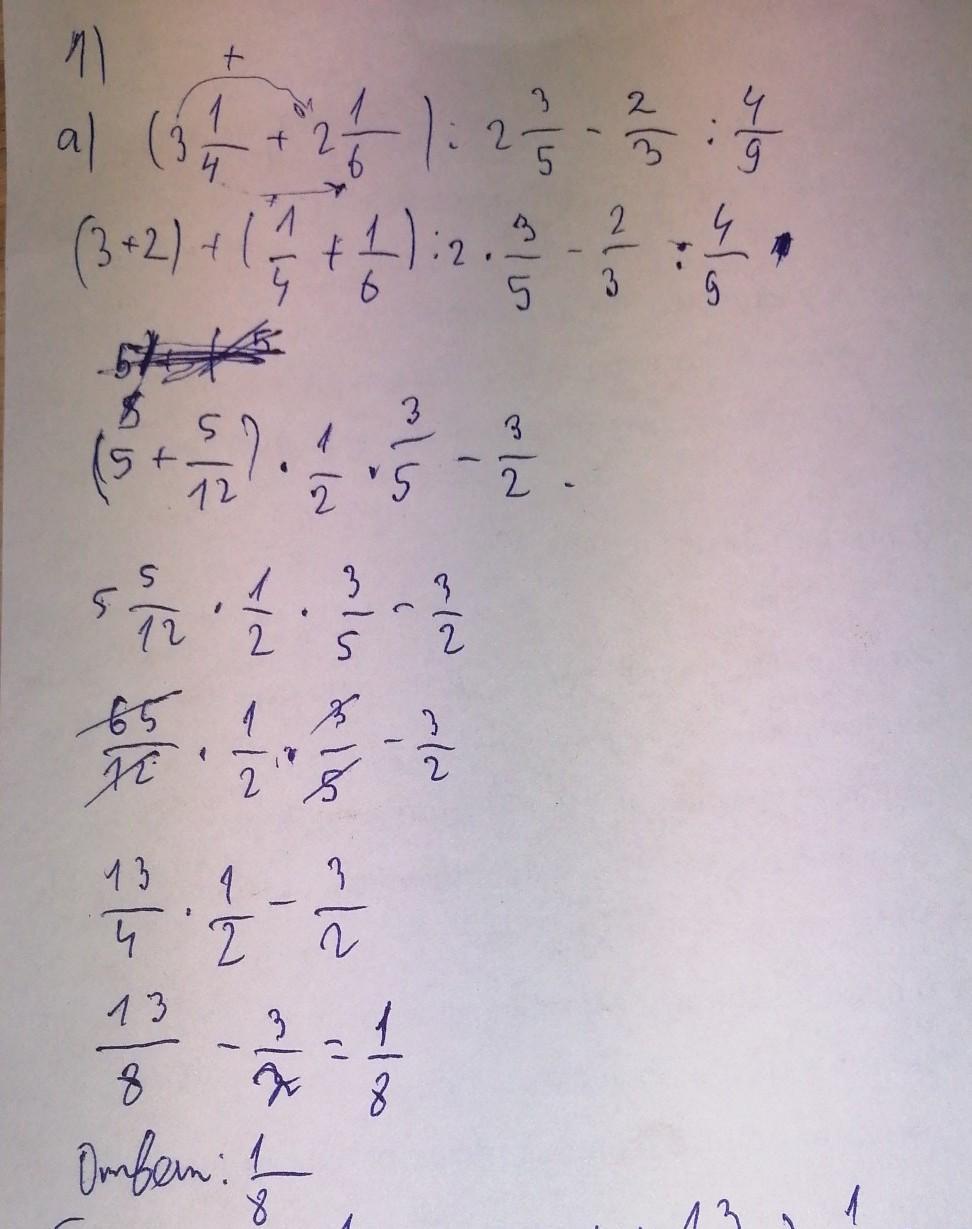 1)
+
а) (3 1/4 + 2 1/6) : 2 3/5 - 2/3 : 4/9
+
(3+2) + (1/4 + 1/6) : 2 · 3/5 - 2/3 : 4/9
(5 + 5/12) · 1/2 · 3/5 - 3/2 .
5 5/12 · 1/2 · 3/5 - 3/2
65/12 · 1/2 · 3/5 - 3/2
13/4 · 1/2 - 3/2
13/8 - 3/2 = 1/8
Ответ: 1/8